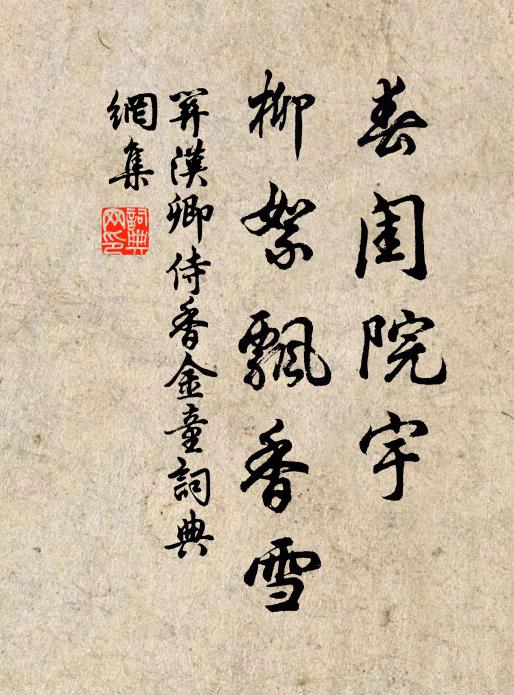 春闺院宇
柳絮飄香雪
關漢卿侍香金童詞典
網集
詞典
网印